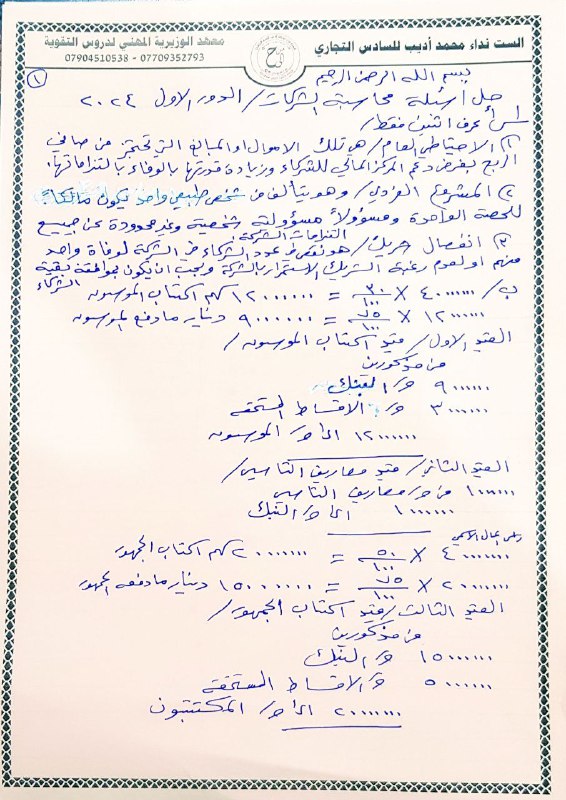 الست نداء محمد أديب للسادس التجاري
معهد الوزيرية المهني لدروس التقوية
07709352793 - 07904510538
١
بسم الله الرحمن الرحيم
حل اسئلة محاسبة الشركات / الدور الاول ٢٠٢٤
س١ أ عرف اثنين فقط /
١) الاحتياطي العام / هو تلك الاموال او المبالغ التي تحتجز من صافي
الربح بغرض دعم المركز المالي للشركاء وزيادة قدرتها بالوفاء بالتزاماتها.
٢) المشروع الفردي / وهو يتألف من شخص طبيعي واحد يكون مالكاً
للحصة الواحدة ومسؤولاً مسؤولية شخصية وغير محدودة عن جميع
التزامات الشركة
٣) انفصال شريك / هو نقص في عدد الشركاء في الشركة لوفاة واحد
منهم او لعدم رغبة الشريك الاستمرار بالشركة ويجب ان يكون بموافقة بقية
الشركاء
ب / ٤٠٠٠٠٠٠٠ × ٣٠/١٠٠ = ١٢٠٠٠٠٠٠ سهم اكتتاب المؤسسون
١٢٠٠٠٠٠٠ × ٧٥/١٠٠ = ٩٠٠٠٠٠٠ دينار ما دفع المؤسسون
القيد الاول / قيد اكتتاب المؤسسون /
من مذكورين
٩٠٠٠٠٠٠ ح/ البنك
٣٠٠٠٠٠٠ ح/ الاقساط المستحقة
١٢٠٠٠٠٠٠ الى ح/ المؤسسون
القيد الثاني / قيد مصاريف التأسيس /
١٠٠٠٠٠٠ من ح/ مصاريف التأسيس
١٠٠٠٠٠٠ الى ح/ البنك
راس المال الاسمي
٤٠٠٠٠٠٠٠ × ٥٠/١٠٠ = ٢٠٠٠٠٠٠٠ سهم اكتتاب الجمهور
٢٠٠٠٠٠٠٠ × ٧٥/١٠٠ = ١٥٠٠٠٠٠٠ دينار ما دفعه الجمهور
القيد الثالث / قيد اكتتاب الجمهور /
من مذكورين
١٥٠٠٠٠٠٠ ح/ البنك
٥٠٠٠٠٠٠ ح/ الاقساط المستحقة
٢٠٠٠٠٠٠٠ الى ح/ المكتتبون